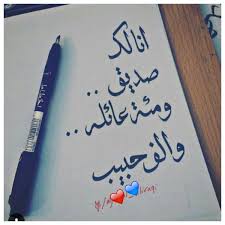 انا لك
صديق ..
ومئة عائله ..
والف حبيب